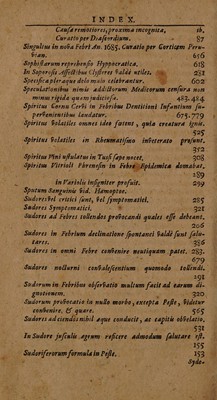 INDEX.
Causa remotiores, proxima incognita, ib.
Curatio per Diascordium. 87
Singultus in nota Febri An. 1685. Curatio per Corticem Peru-
vian. 656
Sophisarum reprehensio Hyppocratica. 618
In Soporosis Affectibus Clysteres valdè utiles. 281
Specifica pleraque dolo malo celebrantur. 602
Speculationibus nimis addictorum Medicorum censura non
minus rigida quàm modesta. 483.484
Spiritus Cornu Cervi in Febribus Dentitioni Infantium su-
pervenientibus laudatur. 675.779
Spiritus volatiles omnes ideo fœtent, quia creatura ignis.
525
Spiritus volatiles in Rheumatismo inveterato prosunt.
352
Spiritus Vini usualatus in Tussi sæpe nocet. 308
Spiritus Vitrioli Phrenesin in Febre Epidemica domabat.
189
in Variolis insigniter profuit. 259
Sputum Sanguinis vid. Hæmoptoe.
Sudores vel critici sunt, vel symptomatici. 285
Sudores Symptomatici. 321
Sudores ad Febres tollendas provocandi quales esse debeant.
206
Sudores in Febrium declinatione spontanei valdè sunt salu-
tares. 386
Sudores in omni Febre convenire neutiquam patet. 283.
679
Sudores nocturni convalescentium quomodo tollendi.
291
Sudorum in Febribus observatio multum facit ad earum di-
gnotionem. 320
Sudorum provocatio in nullo morbo, excepta Peste, videtur
convenire, & quare. 565
Sudores ad ciendos nihil æque conducit, ac capitis obvelatio.
531
In Sudore jusculi ægrum reficere admodum salutare est.
155
Sudoriferorum formula in Peste. 153
Syde-